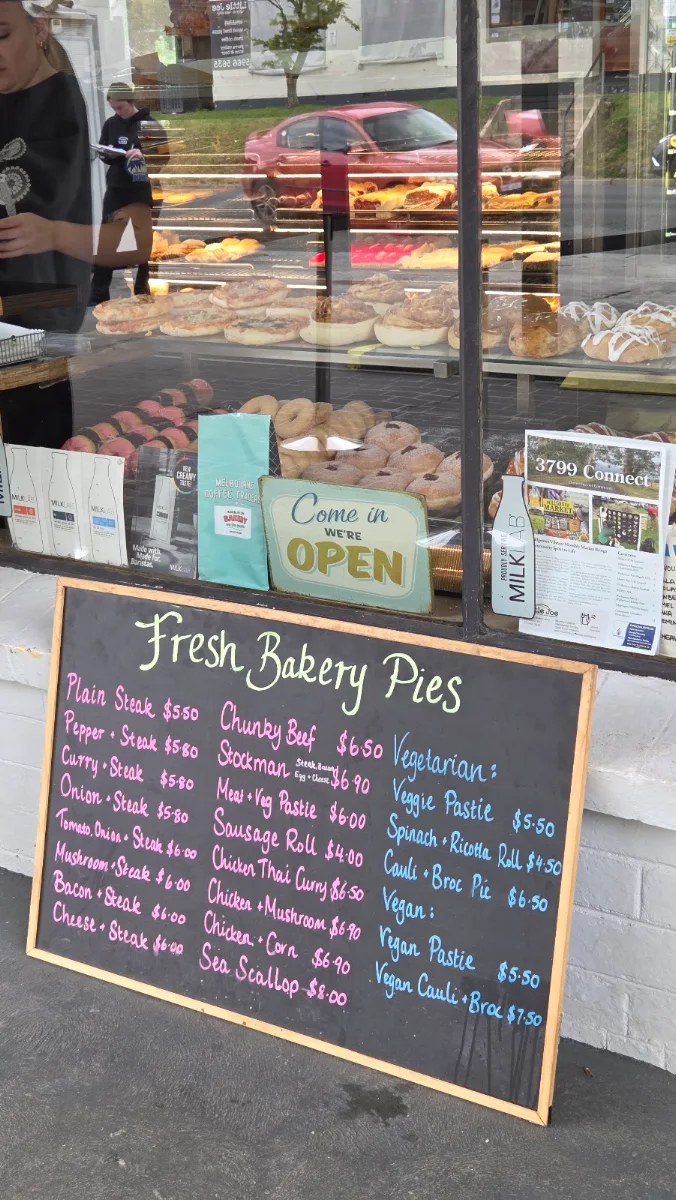 Little Joe
5966 5635
NEW
CREAMY
MELBOURNE
COFFEE TRADERS
BAKERY
MILK
MILK
MILK
Made with.
Made for.
Baristas.
Come in
WE'RE
OPEN
PROUDLY SERVING
MILKLAB
3799 Connect
MARKET
Fresh Bakery Pies
Plain Steak $5.50
Pepper + Steak $5.80
Curry + Steak $5.80
Onion + Steak $5.80
Tomato, Onion + Steak $6.00
Mushroom + Steak $6.00
Bacon + Steak $6.00
Cheese + Steak $6.00
Chunky Beef $6.50
Stockman Steak, Bacon, Egg + Cheese $6.90
Meat + Veg Pastie $6.00
Sausage Roll $4.00
Chicken Thai Curry $6.50
Chicken + Mushroom $6.90
Chicken + Corn $6.90
Sea Scallop $8.00
Vegetarian:
Veggie Pastie $5.50
Spinach + Ricotta Roll $4.50
Cauli + Broc Pie $6.50
Vegan:
Vegan Pastie $5.50
Vegan Cauli + Broc $7.50